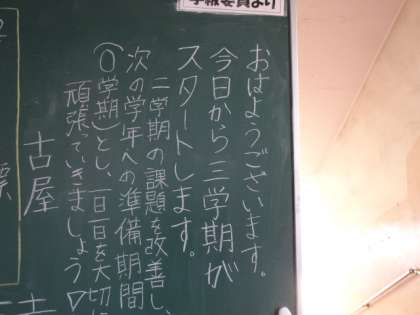 学報委員より
おはようございます。
今日から三学期が
スタートします。
二学期の課題を改善し、
次の学年への準備期間
(0学期)とし、一日一日を大切に
頑張っていきましょう▽
古屋
標